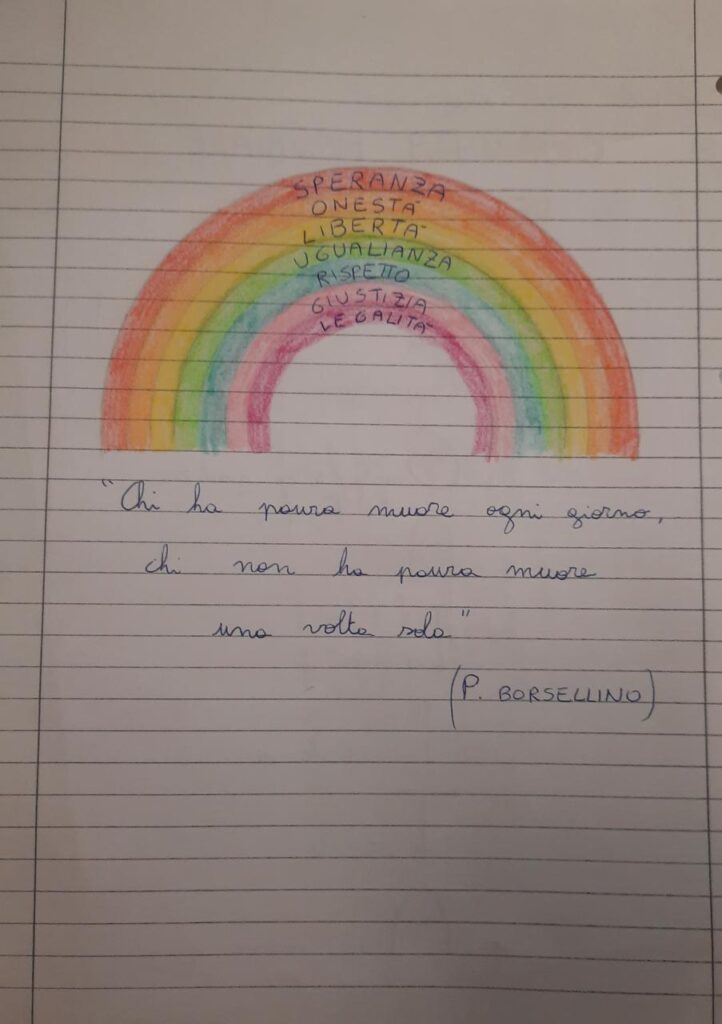 SPERANZA
ONESTÀ
LIBERTÀ
UGUALIANZA
RISPETTO
GIUSTIZIA
LEGALITÀ
"Chi ha paura muore ogni giorno,
chi non ha paura muore
una volta sola"
(P. BORSELLINO)